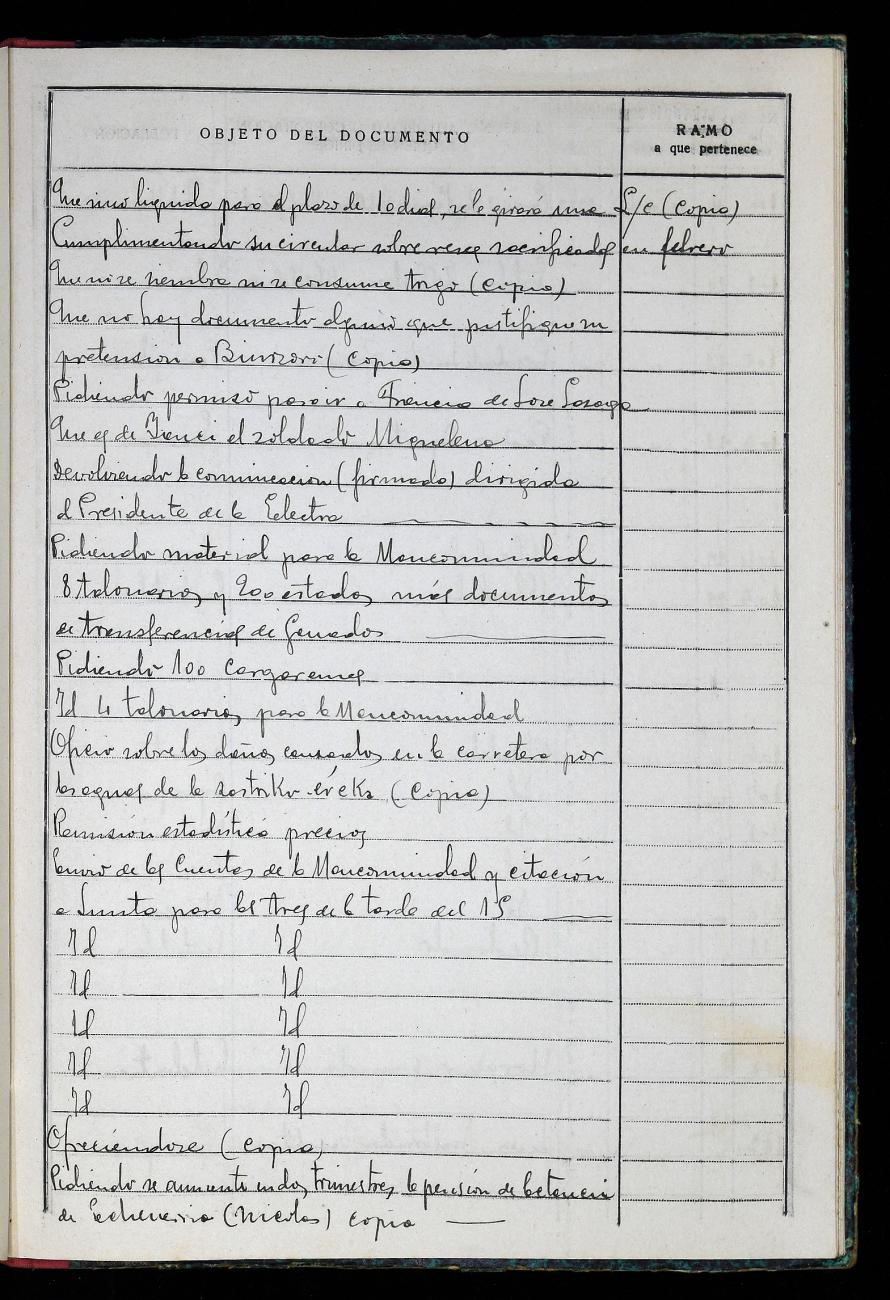 OBJETO DEL DOCUMENTO
RAMO
a que pertenece
Que sino liquida para el plazo de 10 dias, se le girará una L/c (Copia)
Cumplimentando su circular sobre reses sacrificadas en febrero
Que ni se siembra ni se consume trigo (Copia)
Que no hay documento alguno que justifique su
pretension a Binozoro (Copia)
Pidiendo permiso para ir a Francia de Jose
Que es de Yanci el soldado Miguelena
Devolviendo la comunicacion (firmada) dirigida
al Presidente de la Electra
Pidiendo material para la Mancomunidad
8 talonarios y 200 estados más documentos
de transferencias de Ganados
Pidiendo 100 Cargaremes
Id 4 talonarios para la Mancomunidad
Oficio sobre los daños causados en la carretera por
las aguas de la (Copia)
Remisión estadística precios
Envio de las Cuentas de la Mancomunidad y citación
a Junta para las tres de la tarde del 15
Id Id
Id Id
Id Id
Id Id
Id Id
Ofreciendose (Copia)
Pidiendo se aumente en dos trimestres la pensión de lactancia
de Echeverria (Nicolas) copia